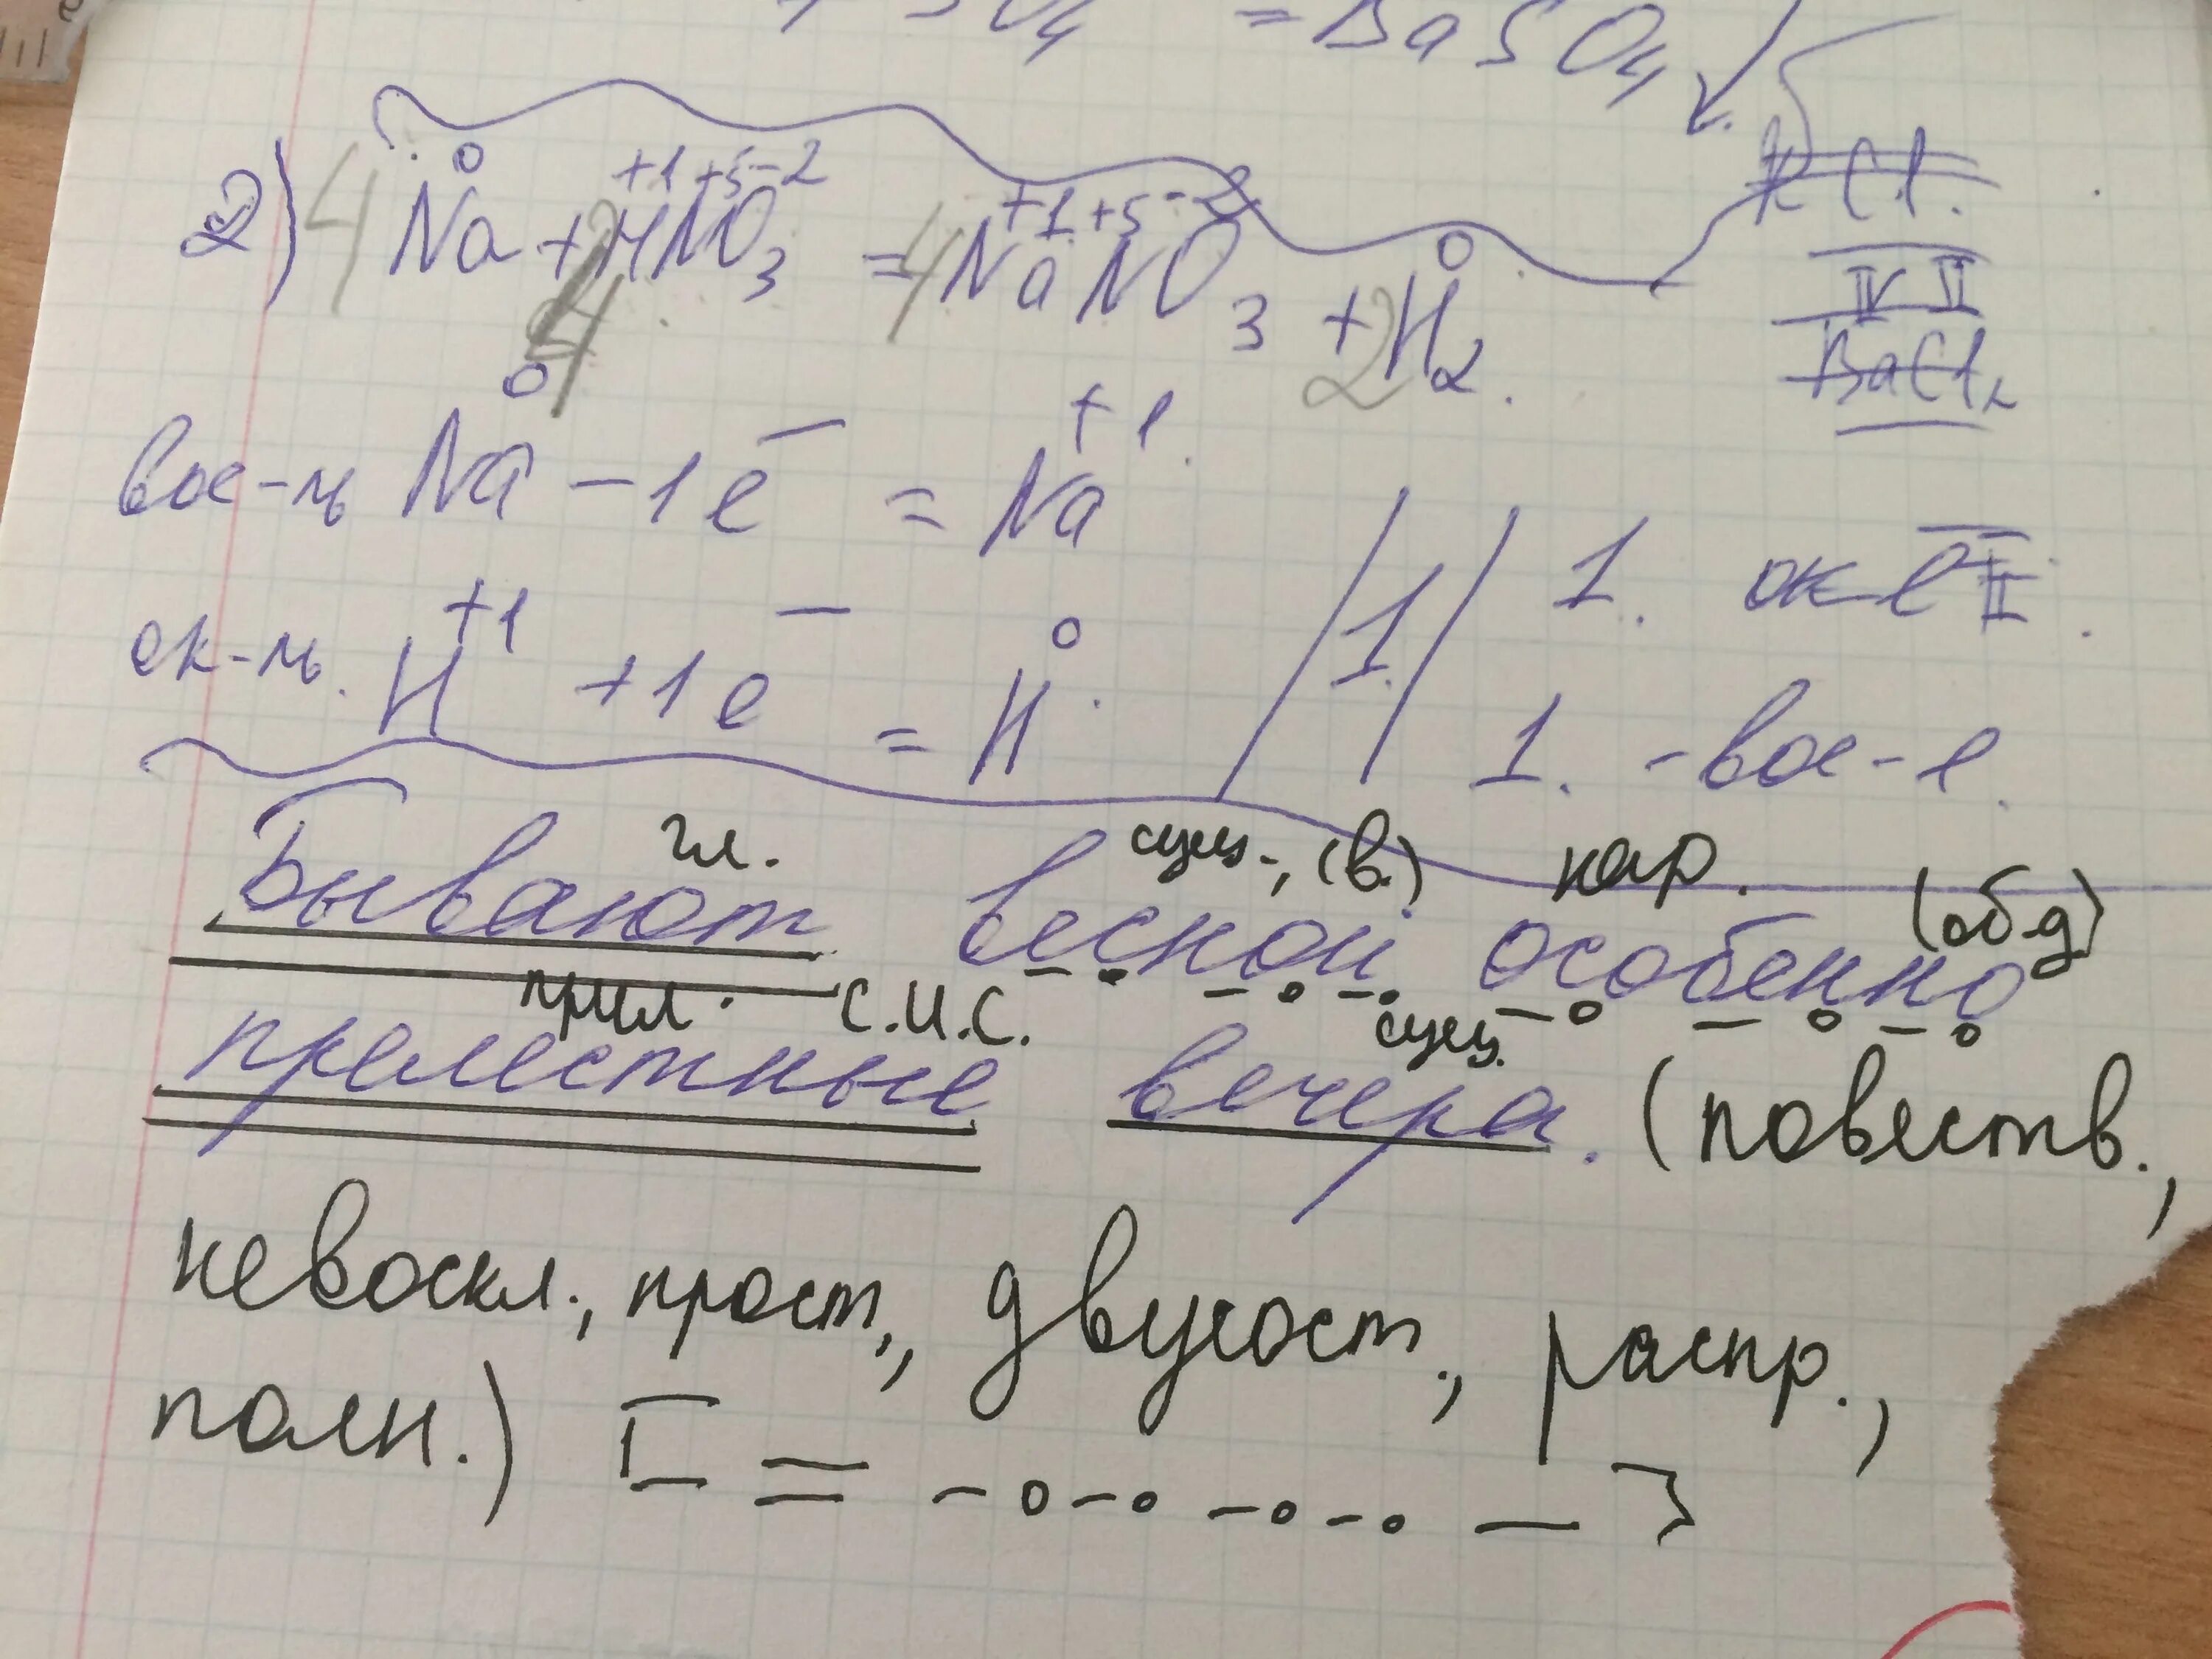 SO4 = BaSO4 ↓.
KCl.
2) 4 Na + 4 HNO3 = 4 NaNO3 + 2 H2.
0 +1 +5 -2 +1 +5 -2 0
IV II
BaCl2
вос-ль Na⁰ - 1e⁻ = Na⁺¹. 1. ок-е II.
ок-ль. H⁺¹ + 1e⁻ = H⁰. /1./ 1. -вос-е.
гл. сущ., (в.) нар. (обд)
Бывают весной особенно
прил. С.И.С. сущ.
прелестные вечера. (повеств.,
невоскл., прост., двусост., распр.,
полн.) [ = -о-о -о-о — ]